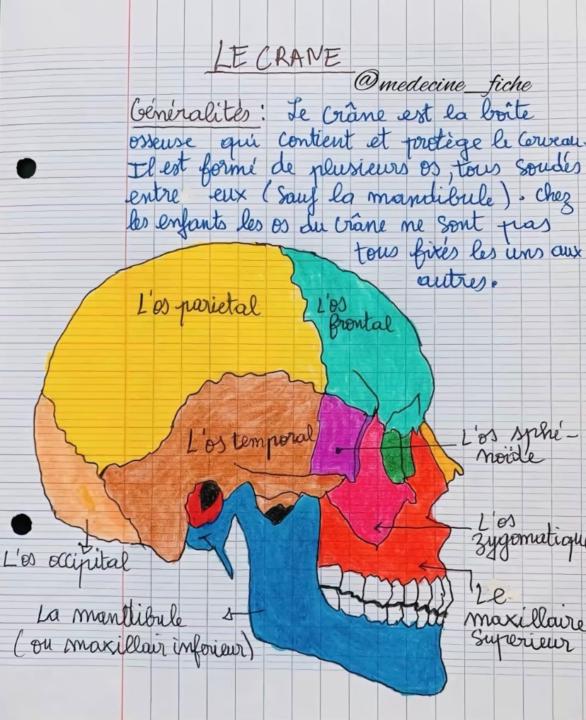 LE CRANE
@medecine_fiche
Généralités : Le crâne est la boîte
osseuse qui contient et protège le cerveau.
Il est formé de plusieurs os, tous soudés
entre eux (sauf la mandibule). chez
les enfants les os du crâne ne sont pas
tous fixés les uns aux
autres.
L'os parietal
L'os
frontal
L'os temporal
L'os sphé-
noïde
L'os
zygomatique
L'os occipital
Le
maxillaire
superieur
La mandibule
(ou maxillair inferieur)